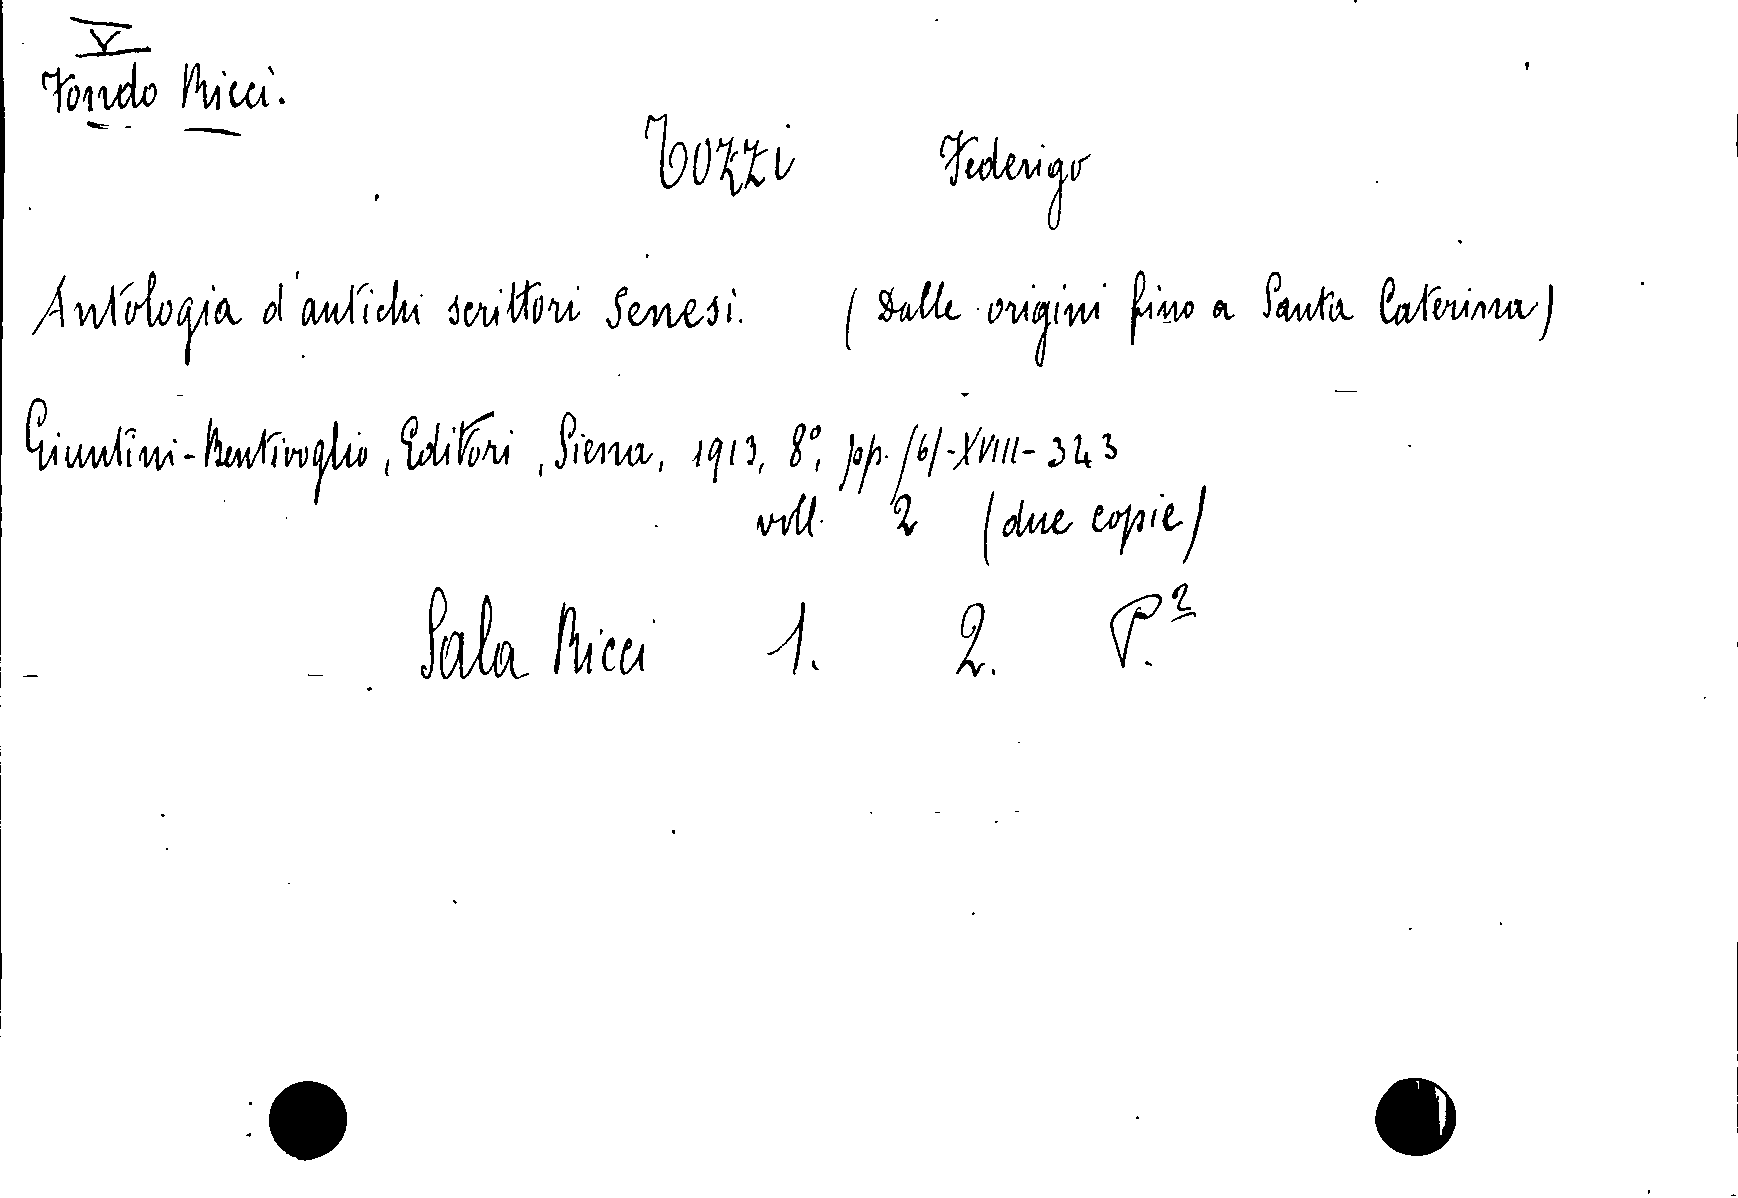 V
Fondo Ricci.
Tozzi Federigo
Antologia d'antichi scrittori Senesi. (Dalle origini fino a Santa Caterina)
Giuntini-Bentivoglio, Editori, Siena, 1913, 8°, pp. /6/-XVIII-323
voll. 2 (due copie)
Sala Ricci 1. 2. P.²